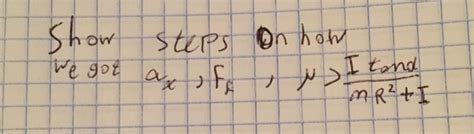 Show steps on how
we got aₓ, Fƒ, μ > I tanα / mR² + I